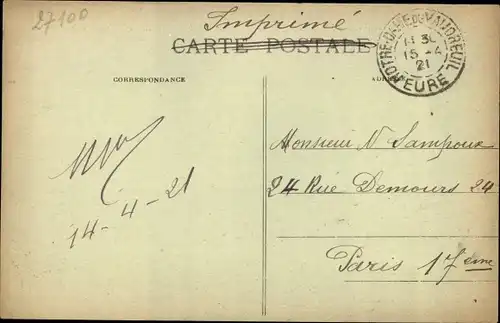 27100
Imprimé
CARTE POSTALE
NOTRE-DAME-DU-VAUDREUIL
11 30
15 -4
21
EURE
CORRESPONDANCE
ADRESSE
14-4-21
Monsieur N Sampoux
24 Rue Demours 24
Paris 17ème